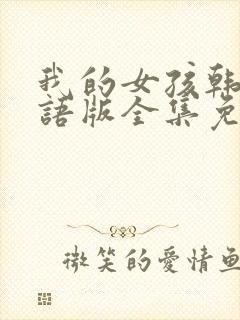 我的女孩韩
語版全集免
微笑的愛情魚